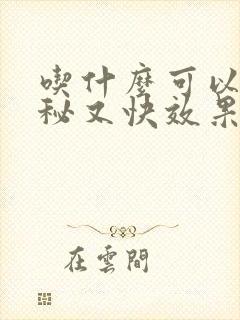 喫什麼可以
秘又快效果
在雲間